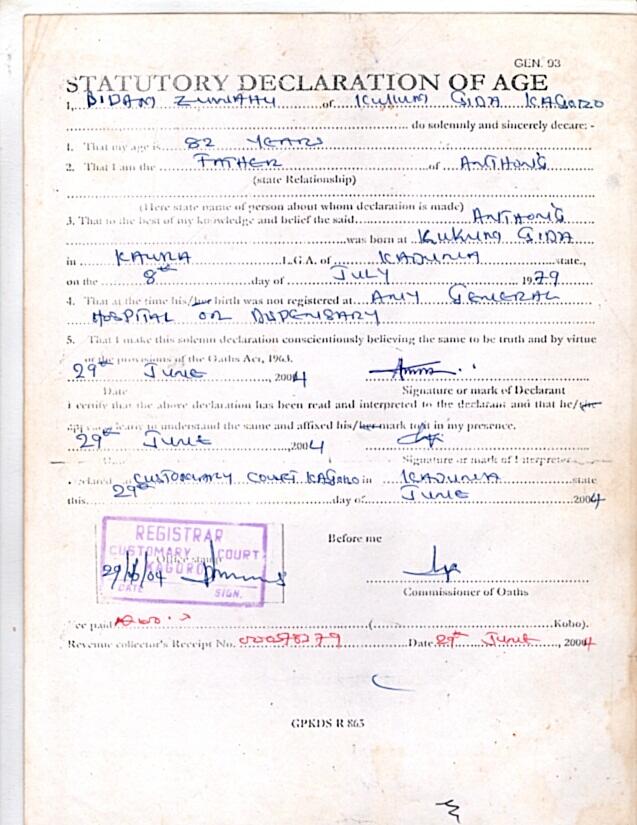 GEN. 93
STATUTORY DECLARATION OF AGE
I, BIDAM ZUWAHU of KUKUM GIDA KAGORO
do solemnly and sincerely decare: -
1. That my age is 82 YEARS
2. That I am the FATHER of ANTHONG
(state Relationship)
(Here state name of person about whom declaration is made)
3. That to the best of my knowledge and belief the said ANTHONG
was born at KUKUM GIDA
in KAURA L.G.A. of KADUNA state,
on the 8th day of JULY 1979
4. That at the time his/her birth was not registered at ANY GENERAL
HOSPITAL OR DISPENSARY
5. That I make this solemn declaration conscientiously believing the same to be truth and by virtue
of the provisions of the Oaths Act, 1963.
29th June, 2004
Date Signature or mark of Declarant
I certify that the above declaration has been read and interpreted to the declarant and that he/she
to understand the same and affixed his/her mark to it in my presence.
29th June, 2004
Signature or mark of Interpreter
CUSTOMARY COURT KAGORO in KADUNA state
this 29th day of June 2004
REGISTRAR
CUSTOMARY COURT
KAGORO
Office stamp
29/6/04
DATE SIGN.
Before me
Commissioner of Oaths
paid ( Kobo).
Revenue collector's Receipt No. Date 29th June, 2004
GPKDS R 863